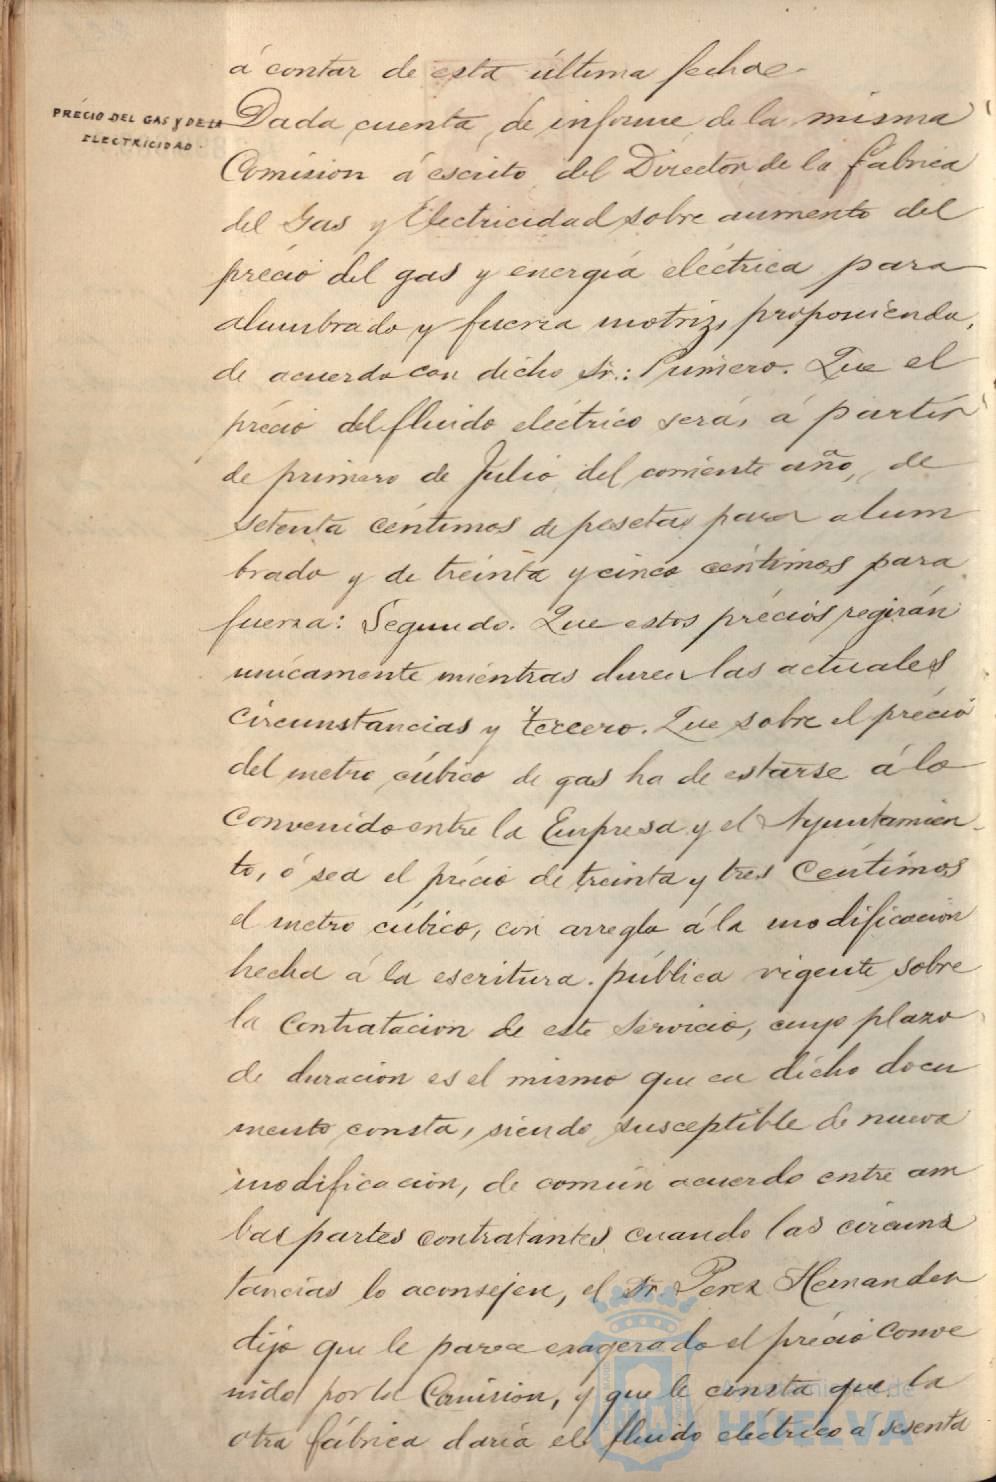 á contar de esta última fecha.
PRÉCIO DEL GAS Y DE LA
ELECTRICIDAD.
Dada cuenta de informe de la misma
Comision á escrito del Director de la fábrica
del Gas y Electricidad sobre aumento del
précio del gas y energía eléctrica para
alumbrado y fuerza motriz, proponiendo,
de acuerdo con dicho Sr.: Primero. Que el
précio del fluido eléctrico será, á partir
de primero de Julio del corriente año, de
setenta céntimos de pesetas para alum
brado y de treinta y cinco céntimos para
fuerza: Segundo. Que estos précios regirán
unicamente mientras duren las actuales
circunstancias y tercero. Que sobre el précio
del metro cúbico de gas ha de estarse á lo
convenido entre la Empresa y el Ayuntamien-
to, ó sea el précio de treinta y tres céntimos
el metro cúbico, con arreglo á la modificacion
hecha á la escritura pública vigente sobre
la contratacion de este servicio, cuyo plazo
de duracion es el mismo que en dicho docu
mento consta, siendo susceptible de nueva
modificacion, de común acuerdo entre am
bas partes contratantes cuando las circuns
tancias lo aconsejen, el Sr. Perez Hernandez
dijo que le parece exagerado el précio conve
nido por la Comision, y que le consta que la
otra fábrica daría el fluido eléctrico a sesenta
Ayuntamiento de
HUELVA